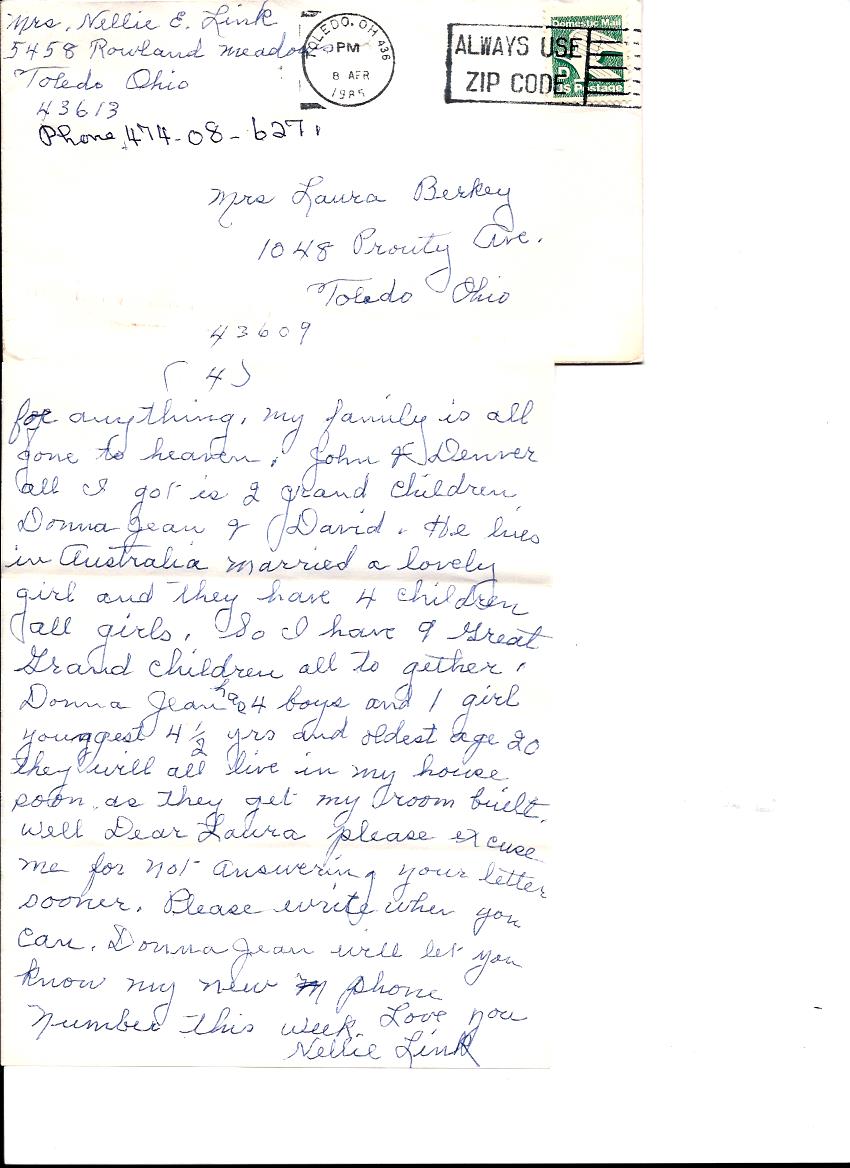 Mrs, Nellie E. Link
5458 Rowland meadows
Toledo Ohio
43613
Phone, 474-08-6271
TOLEDO, OH 436
PM
8 APR
1985
ALWAYS USE
ZIP CODE
Domestic Mail
US Postage
Mrs Laura Berkey
1048 Prouty Ave.
Toledo Ohio
43609
(4)
for anything, my family is all
gone to heaven, John & Denver
all I got is 2 grand children
Donna Jean & David. He lies
in Australia married a lovely
girl and they have 4 children
all girls, So I have 9 Great
Grand children all to gether,
Donna Jean has 4 boys and 1 girl
youngest 4 1/2 yrs and oldest age 20
they will all live in my house
soon as they get my room built.
well Dear Laura please excuse
me for not answering your letter
sooner. Please write when you
can. Donna Jean will let you
know my new phone
number this week. Love you
Nellie Link